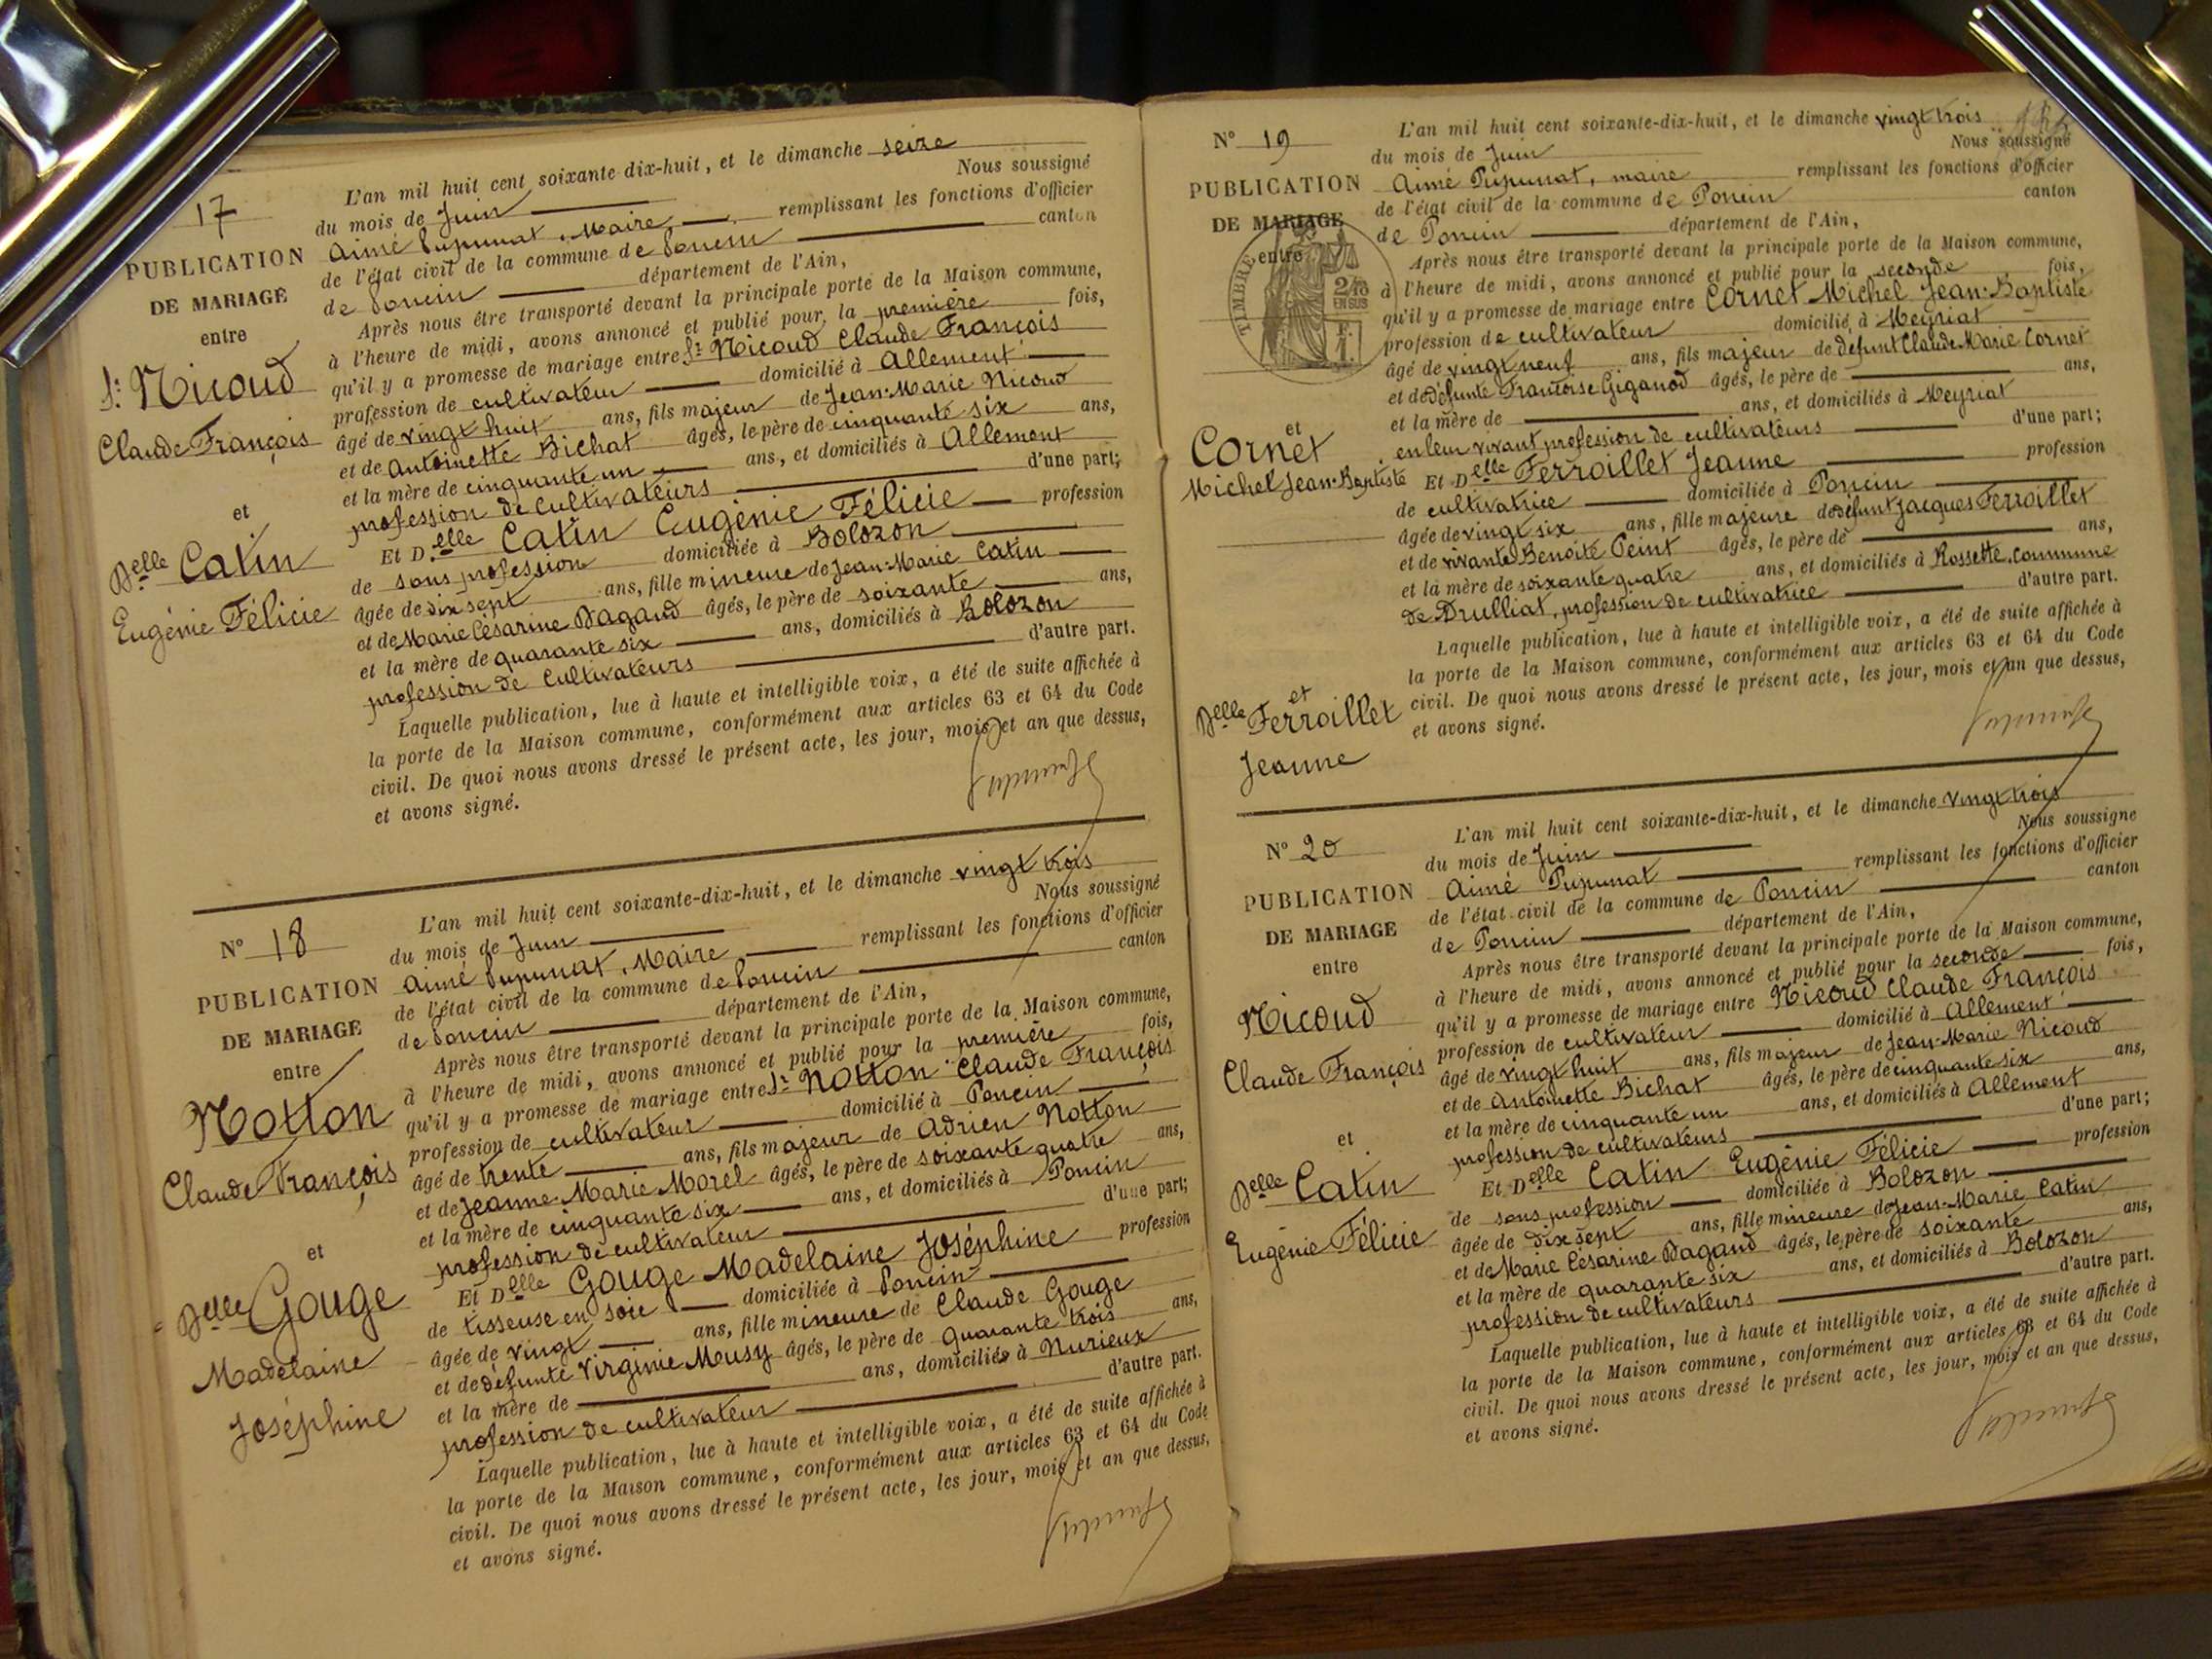 17
PUBLICATION
DE MARIAGE
entre
Sr Nicoud
Claude François
et
Delle Catin
Eugénie Félicie
L'an mil huit cent soixante-dix-huit, et le dimanche seize
du mois de Juin Nous soussigné
Aimé Pupunat, Maire, remplissant les fonctions d'officier
de l'état civil de la commune de Poncin canton
de Poncin département de l'Ain,
Après nous être transporté devant la principale porte de la Maison commune,
à l'heure de midi, avons annoncé et publié pour la première fois,
qu'il y a promesse de mariage entre Sr Nicoud Claude François
profession de cultivateur domicilié à Allement
âgé de vingt huit ans, fils majeur de Jean-Marie Nicoud
et de Antoinette Bichat âgés, le père de cinquante six ans,
et la mère de cinquante un ans, et domiciliés à Allement
profession de cultivateurs d'une part;
Et Delle Catin Eugénie Félicie profession
de sans profession domiciliée à Bolozon
âgée de dix sept ans, fille mineure de Jean-Marie Catin
et de Marie Césarine Dagaud âgés, le père de soixante ans,
et la mère de quarante six ans, domiciliés à Bolozon
profession de cultivateurs d'autre part.
Laquelle publication, lue à haute et intelligible voix, a été de suite affichée à
la porte de la Maison commune, conformément aux articles 63 et 64 du Code
civil. De quoi nous avons dressé le présent acte, les jour, mois et an que dessus,
et avons signé.
Pupunat
N° 18
PUBLICATION
DE MARIAGE
entre
Notton
Claude François
et
Delle Gouge
Madelaine
Joséphine
L'an mil huit cent soixante-dix-huit, et le dimanche vingt trois
du mois de Juin Nous soussigné
Aimé Pupunat, Maire remplissant les fonctions d'officier
de l'état civil de la commune de Poncin canton
de Poncin département de l'Ain,
Après nous être transporté devant la principale porte de la Maison commune,
à l'heure de midi, avons annoncé et publié pour la première fois,
qu'il y a promesse de mariage entre Sr Notton Claude François
profession de cultivateur domicilié à Poncin
âgé de trente ans, fils majeur de Adrien Notton
et de Jeanne-Marie Morel âgés, le père de soixante quatre ans,
et la mère de cinquante six ans, et domiciliés à Poncin
profession de cultivateur d'une part;
Et Delle Gouge Madelaine Joséphine profession
de tisseuse en soie domiciliée à Poncin
âgée de vingt ans, fille mineure de Claude Gouge
et de défunte Virginie Musy âgés, le père de quarante trois ans,
et la mère de ans, domiciliés à Nurieux
profession de cultivateur d'autre part.
Laquelle publication, lue à haute et intelligible voix, a été de suite affichée à
la porte de la Maison commune, conformément aux articles 63 et 64 du Code
civil. De quoi nous avons dressé le présent acte, les jour, mois et an que dessus,
et avons signé.
Pupunat
N° 19
PUBLICATION
DE MARIAGE
entre
TIMBRE
2/10
EN SUS
et
Cornet
Michel Jean-Baptiste
et
Delle Ferroillet
Jeanne
L'an mil huit cent soixante-dix-huit, et le dimanche vingt trois
du mois de Juin Nous soussigné
Aimé Pupunat, maire remplissant les fonctions d'officier
de l'état civil de la commune de Poncin canton
de Poncin département de l'Ain,
Après nous être transporté devant la principale porte de la Maison commune,
à l'heure de midi, avons annoncé et publié pour la seconde fois,
qu'il y a promesse de mariage entre Cornet Michel Jean-Baptiste
profession de cultivateur domicilié à Meyriat
âgé de vingt neuf ans, fils majeur de défunt Claude Marie Cornet
et de défunte Françoise Giganod âgés, le père de ans,
et la mère de ans, et domiciliés à Meyriat
en leur vivant profession de cultivateurs d'une part;
Et Delle Ferroillet Jeanne profession
de cultivatrice domiciliée à Poncin
âgée de vingt six ans, fille majeure de défunt Jacques Ferroillet
et de vivante Benoite Peint âgés, le père de ans,
et la mère de soixante quatre ans, et domiciliés à Rossette, commune
de Druilliat, profession de cultivatrice d'autre part.
Laquelle publication, lue à haute et intelligible voix, a été de suite affichée à
la porte de la Maison commune, conformément aux articles 63 et 64 du Code
civil. De quoi nous avons dressé le présent acte, les jour, mois et an que dessus,
et avons signé.
Pupunat
N° 20
PUBLICATION
DE MARIAGE
entre
Nicoud
Claude François
et
Delle Catin
Eugénie Félicie
L'an mil huit cent soixante-dix-huit, et le dimanche vingt trois
du mois de Juin Nous soussigné
Aimé Pupunat remplissant les fonctions d'officier
de l'état civil de la commune de Poncin canton
de Poncin département de l'Ain,
Après nous être transporté devant la principale porte de la Maison commune,
à l'heure de midi, avons annoncé et publié pour la seconde fois,
qu'il y a promesse de mariage entre Nicoud Claude François
profession de cultivateur domicilié à Allement
âgé de vingt huit ans, fils majeur de Jean-Marie Nicoud
et de Antoinette Bichat âgés, le père de cinquante six ans,
et la mère de cinquante un ans, et domiciliés à Allement
profession de cultivateurs d'une part;
Et Delle Catin Eugénie Félicie profession
de sans profession domiciliée à Bolozon
âgée de dix sept ans, fille mineure de Jean-Marie Catin
et de Marie Césarine Dagaud âgés, le père de soixante ans,
et la mère de quarante six ans, et domiciliés à Bolozon
profession de cultivateurs d'autre part.
Laquelle publication, lue à haute et intelligible voix, a été de suite affichée à
la porte de la Maison commune, conformément aux articles 63 et 64 du Code
civil. De quoi nous avons dressé le présent acte, les jour, mois et an que dessus,
et avons signé.
Pupunat